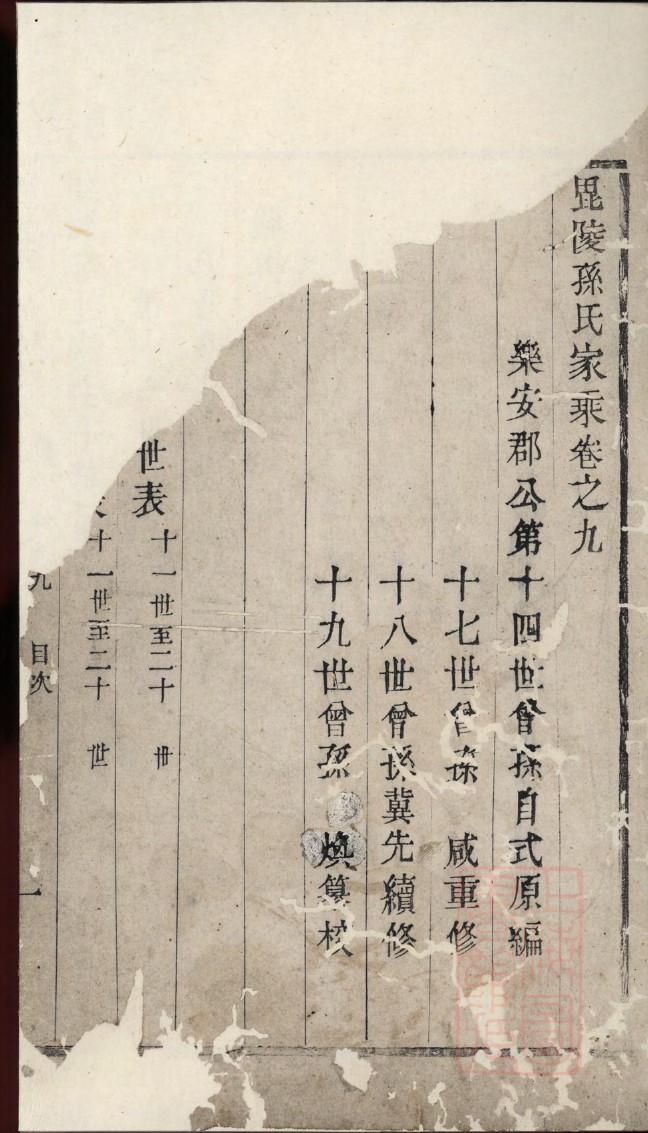 毘陵孫氏家乘卷之九
樂安郡公第十四世曾孫自式原編
十七世曾孫 咸重修
十八世曾孫冀先續修
十九世曾孫 煥纂校
世表 十一世至二十 世
十一世至二十 世
九 目次 一